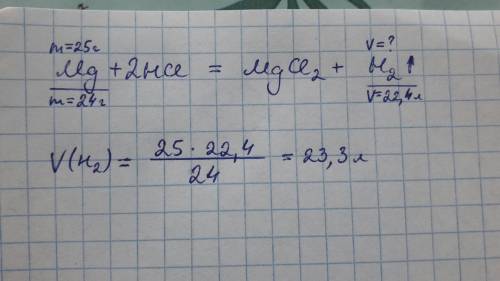 m=25г V=?
Mg+2HCl = MgCl₂+ H₂↑
m=24г V=22,4л
V(H₂)= 25·22,4 / 24 = 23,3л